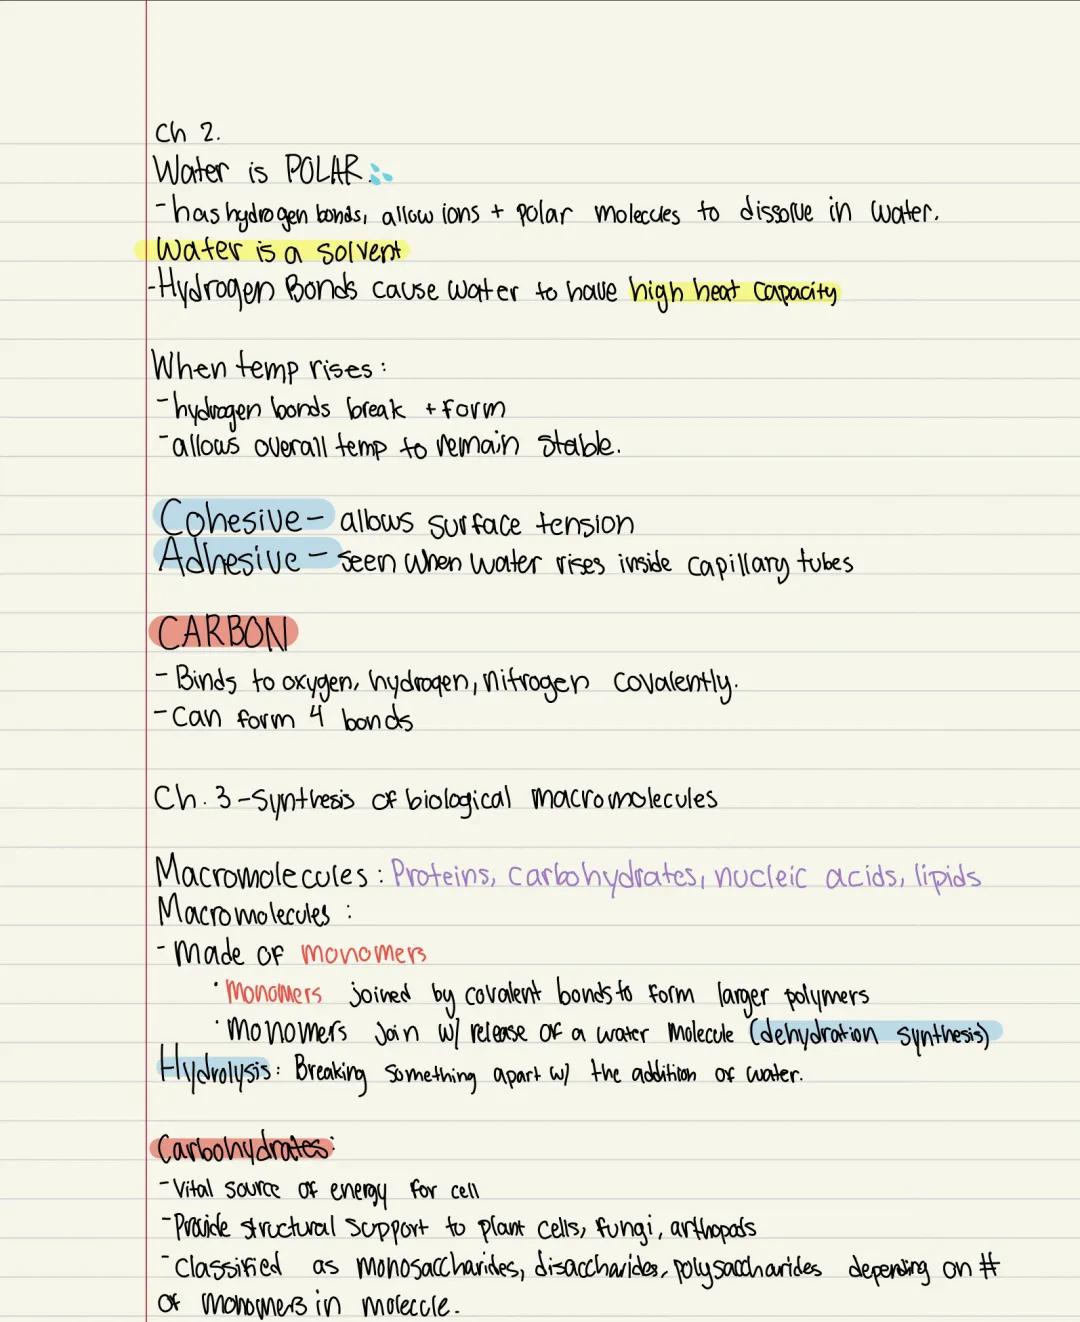 Ch 2.
Water is POLAR.
- has hydrogen bonds, allow ions + polar molecules to dissolve in water.
Water is a solvent
- Hydrogen Bonds cause water to have high heat capacity
When temp rises:
- hydrogen bonds break + form
- allows overall temp to remain stable.
Cohesive - allows surface tension
Adhesive - seen when water rises inside capillary tubes
CARBON
- Binds to oxygen, hydrogen, nitrogen covalently.
- Can form 4 bonds
Ch. 3 - Synthesis of biological macromolecules
Macromolecules: Proteins, carbohydrates, nucleic acids, lipids
Macromolecules:
- Made of monomers
• Monomers joined by covalent bonds to form larger polymers
• Monomers Join w/ release of a water molecule (dehydration synthesis)
Hydrolysis: Breaking something apart w/ the addition of water.
Carbohydrates:
- Vital source of energy for cell
- Provide structural support to plant cells, fungi, arthopods
- Classified as monosaccharides, disaccharides, polysaccharides depending on #
of monomers in molecule.